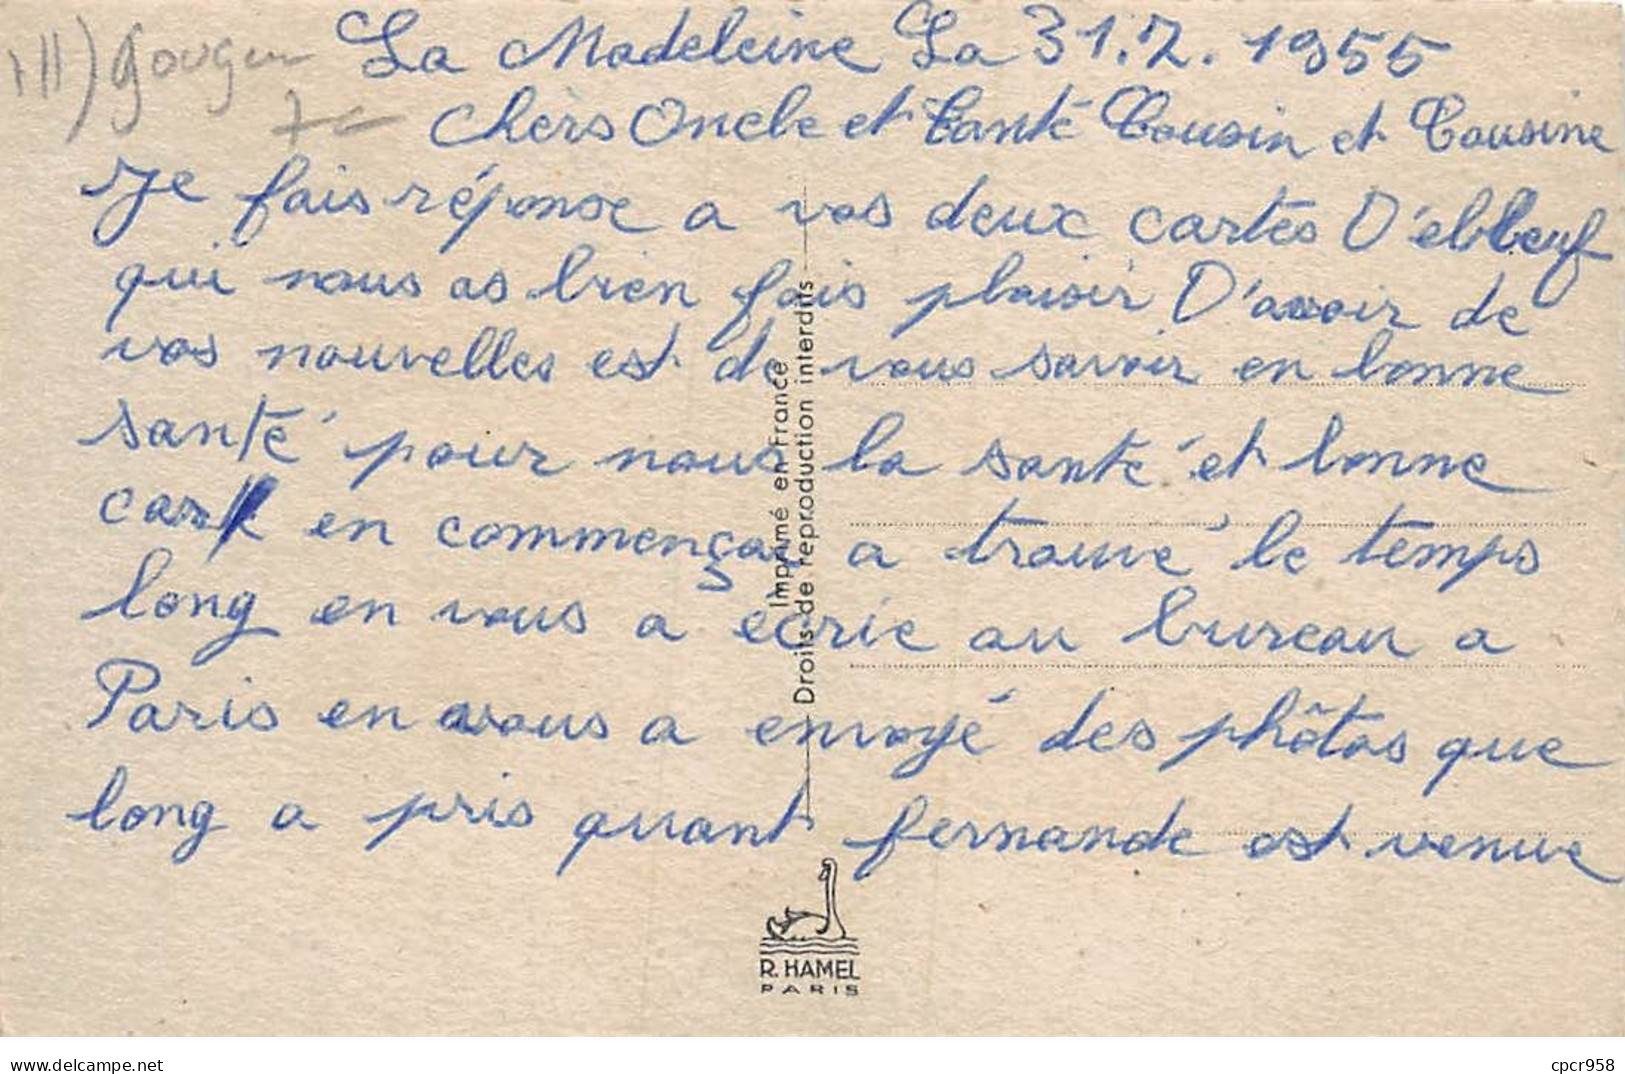 La Madeleine La 31.7.1955
Chèrs Oncle et Tanté Cousin et Cousine
Je fais réponse a vos deux cartes D'elbeuf
qui nous as bien fais plaisir D'avoir de
vos nouvelles est de vous savoir en bonne
santé pour nous la santé et bonne
en commençai a trouvé le temps
long en vous a écrie au bureau a
Paris en vous a envoyé des phôtos que
long a pris quant fernande est venue
Imprimé en France
Droits de reproduction interdits
R. HAMEL
PARIS
delcampe.net
cpcr958